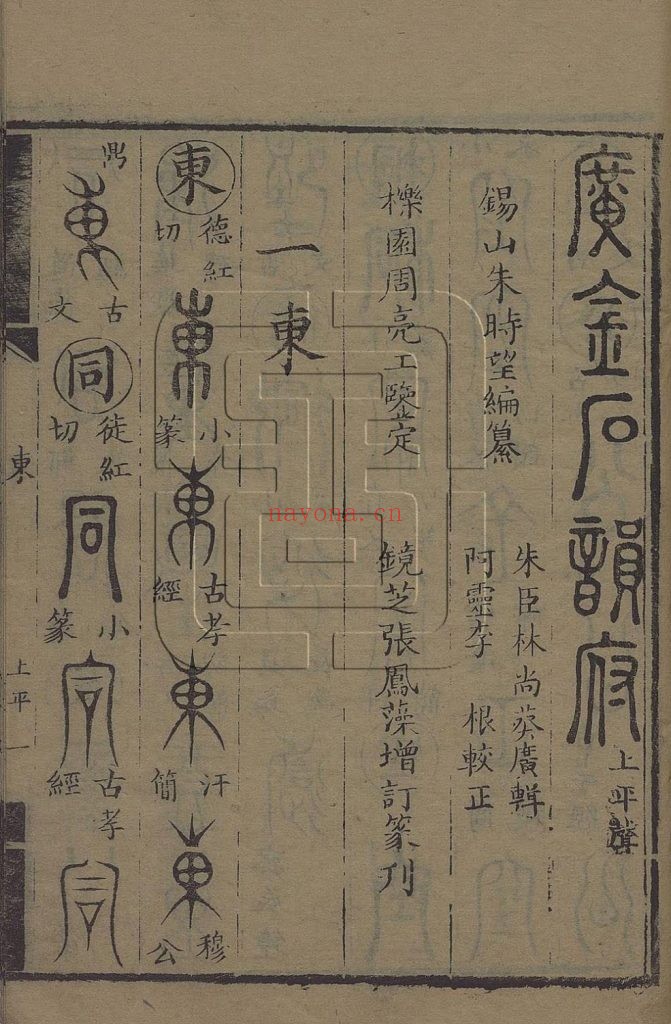 廣金石韻府 上平聲
錫山朱時望編纂
朱臣林尚葵廣輯
阿靈李 根較正
櫟園周亮工鑒定 鏡芝張鳳藻增訂篆刊
一東
東 德紅切 東 小篆 東 古孝經 東 汗簡 東 穆公
鼎 東 古文 同 徒紅切 同 小篆 同 古孝經 同
東
上平 一
nayona.cn